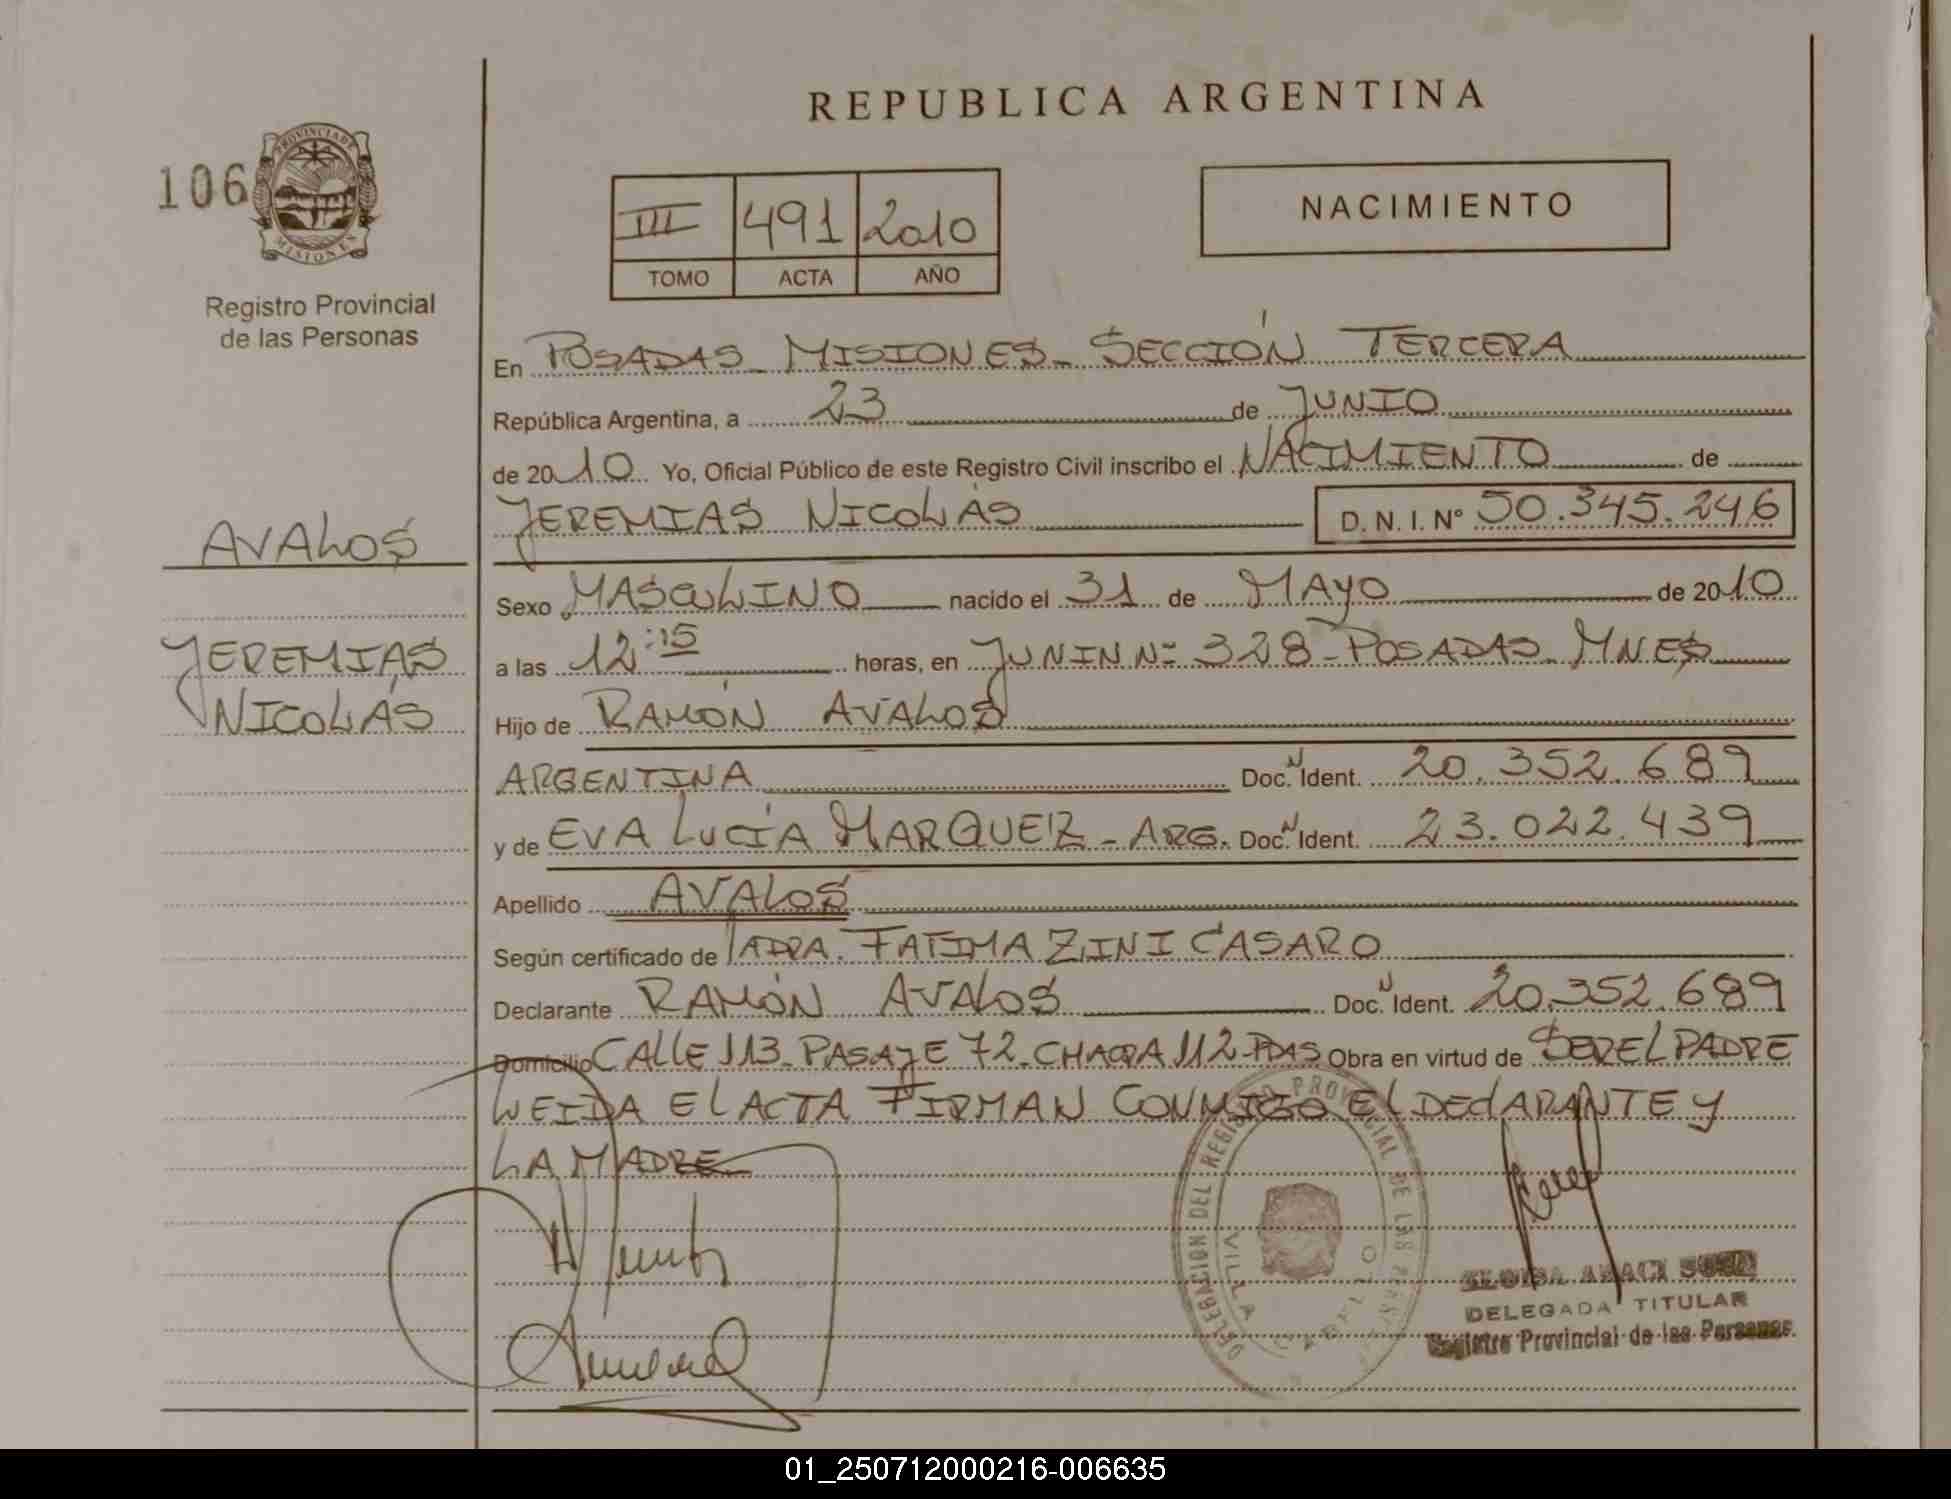 REPUBLICA ARGENTINA
106
PROVINCIA DE
MISIONES
Registro Provincial
de las Personas
III 491 2010
TOMO ACTA AÑO
NACIMIENTO
En POSADAS - MISIONES - SECCIÓN TERCERA
República Argentina, a 23 de JUNIO
de 2010 Yo, Oficial Público de este Registro Civil inscribo el NACIMIENTO de
JEREMIAS NICOLÁS D.N.I. Nº 50.345.246
AVALOS
JEREMIAS
NICOLÁS
Sexo MASCULINO nacido el 31 de MAYO de 2010
a las 12:15 horas, en JUNIN Nº 328 - POSADAS - MNES
Hijo de RAMÓN AVALOS
ARGENTINA Doc. N Ident. 20.352.689
y de EVA LUCÍA MARQUEZ - ARG. Doc. N Ident. 23.022.439
Apellido AVALOS
Según certificado de DRA. FATIMA ZINI CASARO
Declarante RAMÓN AVALOS Doc. N Ident. 20.352.689
Domicilio CALLE 113 - PASAJE 72 - CHACRA 112 - PDAS Obra en virtud de SER EL PADRE
LEIDA EL ACTA FIRMAN CONMIGO EL DECLARANTE Y
LA MADRE
DELEGACION DEL REGISTRO PROVINCIAL DE LAS PERSONAS
VILLA CABELLO
DELEGADA TITULAR
Registro Provincial de las Personas
01_250712000216-006635